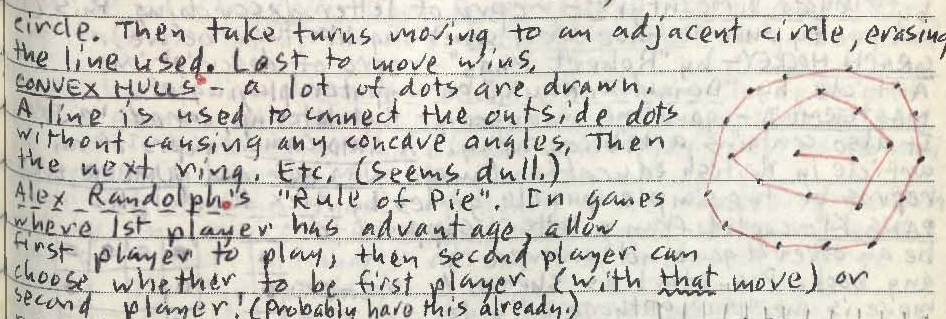 circle. Then take turns moving to an adjacent circle, erasing
the line used. Last to move wins.
CONVEX HULLS - a lot of dots are drawn.
A line is used to connect the outside dots
without causing any concave angles, Then
the next ring. Etc. (Seems dull.)
Alex Randolph's "Rule of Pie". In games
where 1st player has advantage, allow
first player to play, then second player can
choose whether to be first player (with that move) or
second player! (Probably have this already.)